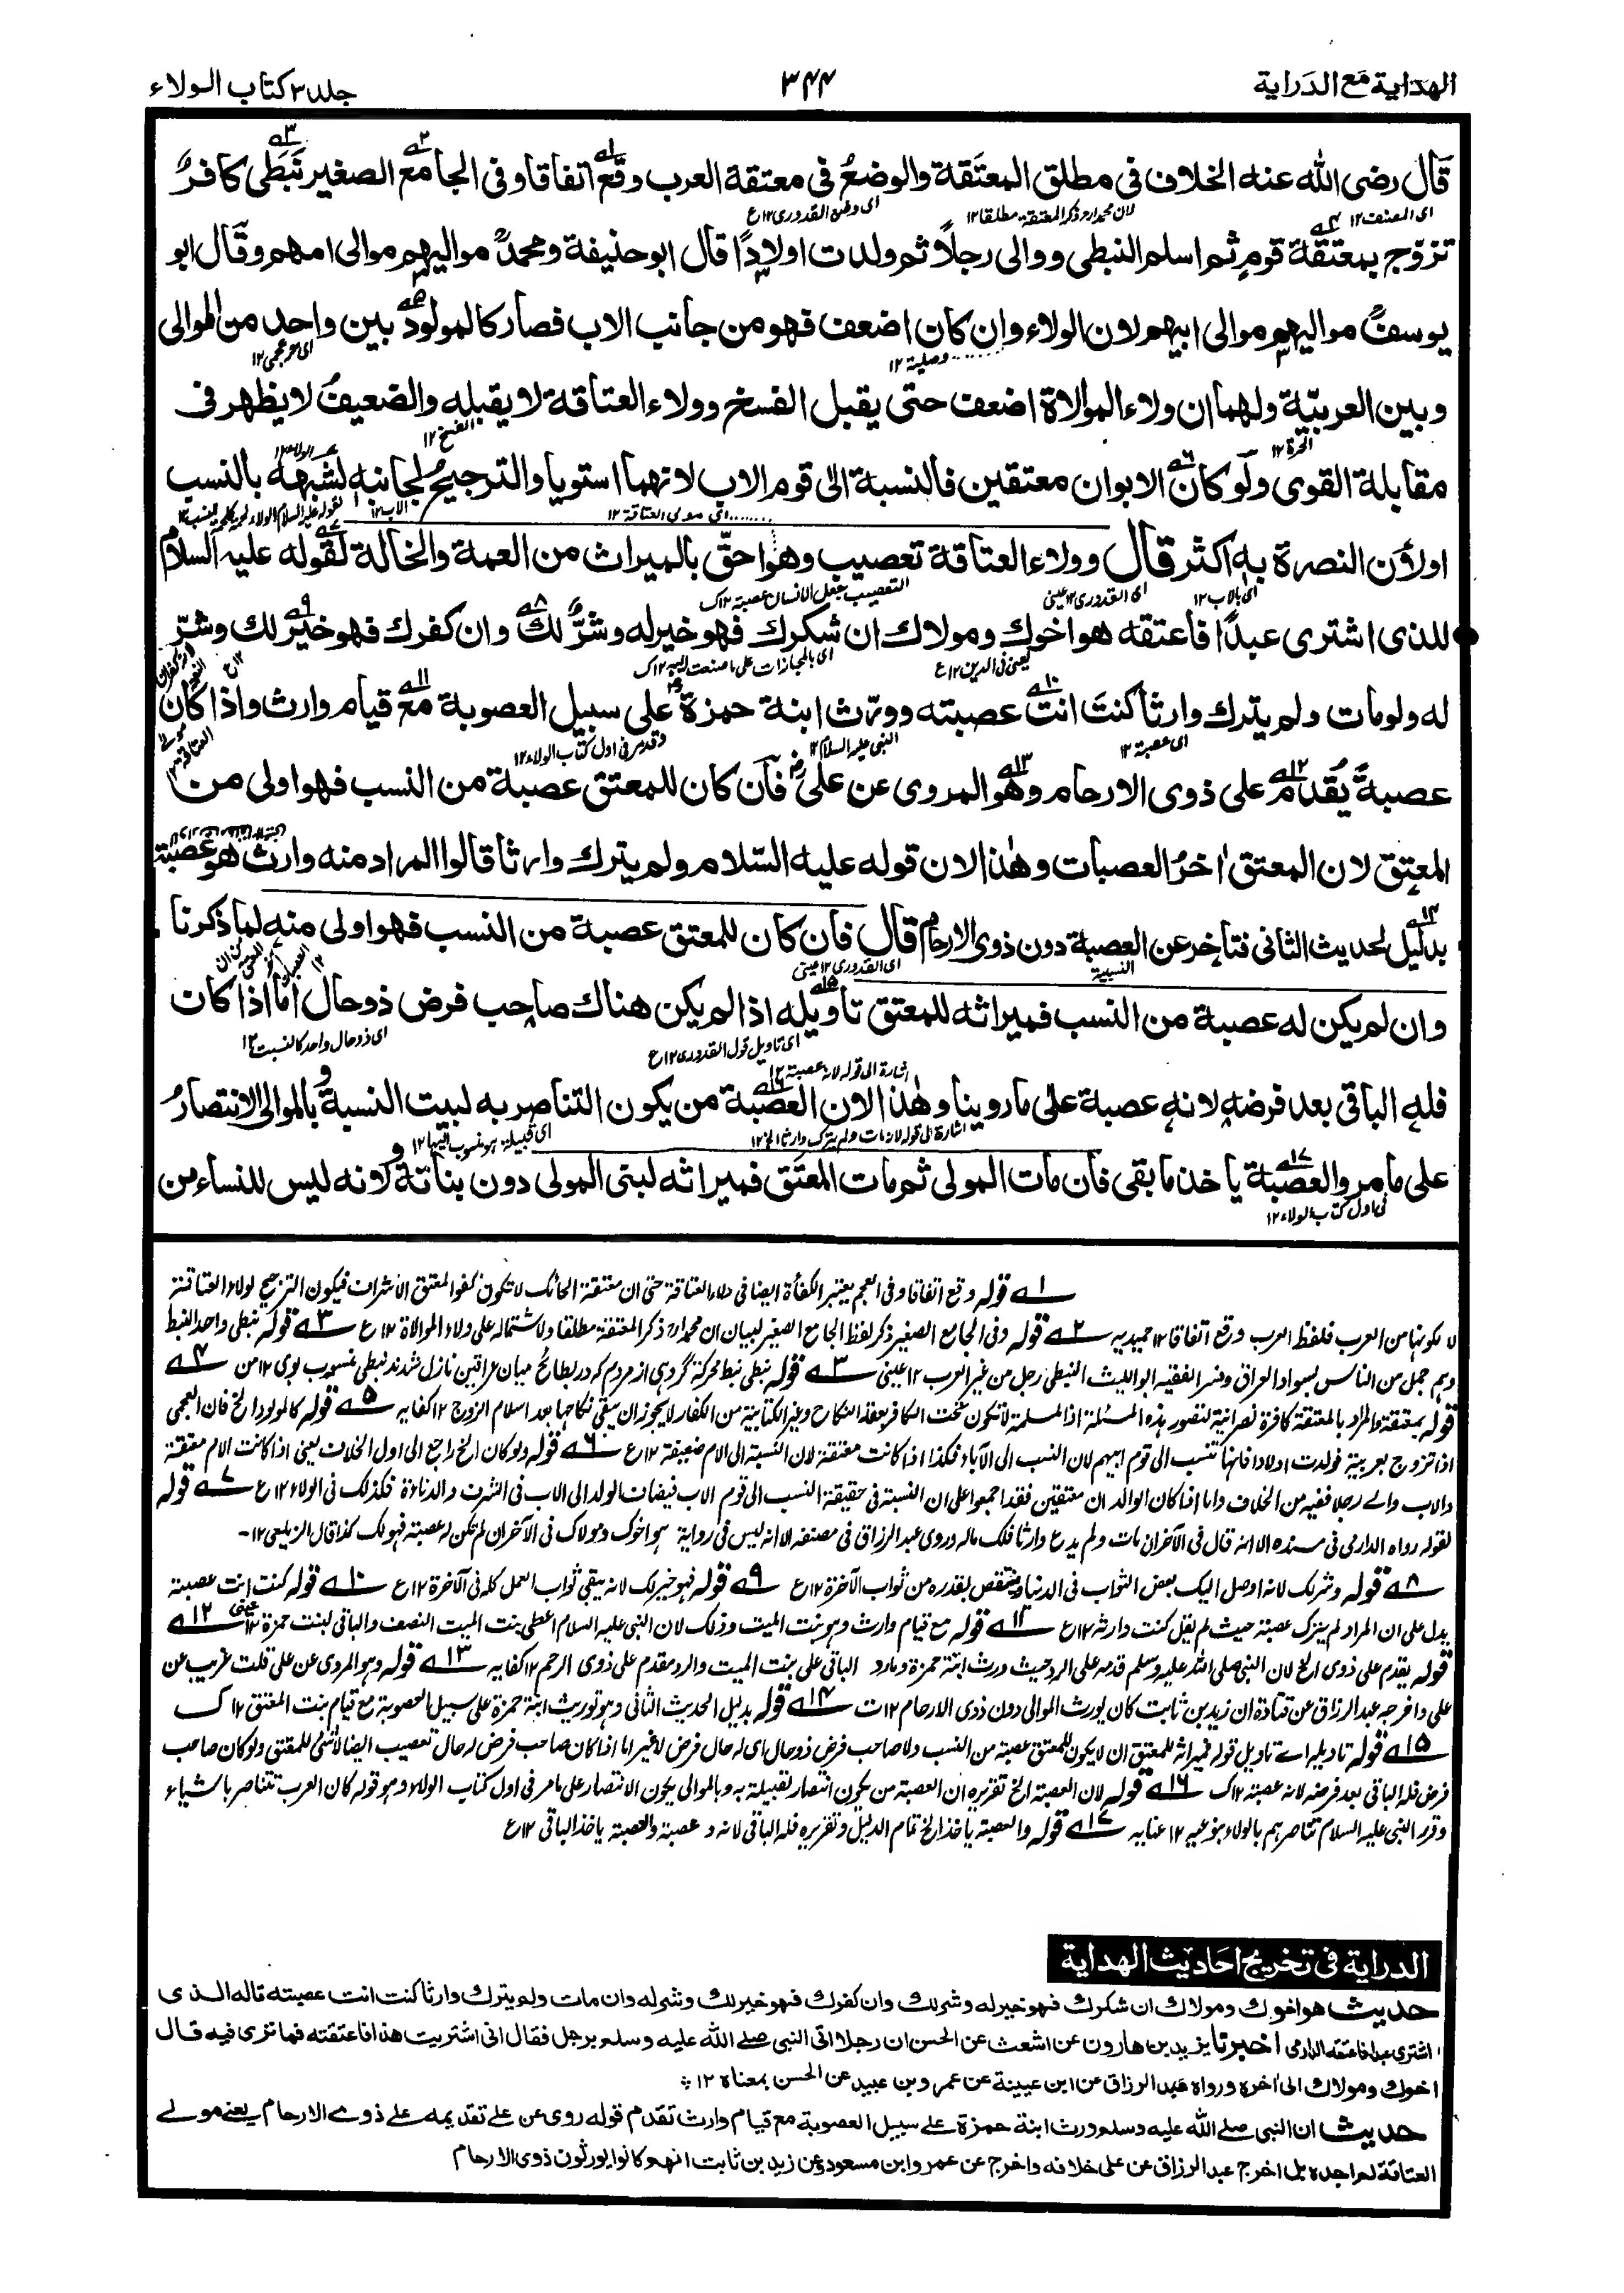 الهداية مع الدراية
۳۴۴
جلد ۳ كتاب الولاء
قال رضى الله عنه الخلاف فى مطلق المعتقة والوضع فى معتقة العرب وقع اتفاقا وفى الجامع الصغير نبطى كافر
تزوج بمعتقة قوم ثم اسلم النبطى ووالى رجلا ثم ولدت اولادا قال ابوحنيفة ومحمد مواليهم موالى امهم وقال ابو
يوسف مواليهم موالى ابيهم لان الولاء وان كان اضعف فهو من جانب الاب فصار كالمولود بين واحد من الموالى
وبين العربية ولهما ان ولاء الموالاة اضعف حتى يقبل الفسخ وولاء العتاقة لا يقبله والضعيف لا يظهر فى
مقابلة القوى ولو كان الابوان معتقين فالنسبة الى قوم الاب لانهما استويا والترجيح لجانبه لشبهه بالنسب
اولان النصرة به اكثر قال وولاء العتاقة تعصيب وهو احق بالميراث من العمة والخالة لقوله عليه السلام
للذى اشترى عبدا فاعتقه هو اخوك ومولاك ان شكرك فهو خير له وشر لك وان كفرك فهو خير لك وشر
له ولو مات ولم يترك وارثا كنت انت عصبته وورث ابنة حمزة على سبيل العصوبة مع قيام وارث واذا كان
عصبة يقدم على ذوى الارحام وهو المروى عن على فان كان للمعتق عصبة من النسب فهو اولى من
المعتق لان المعتق اخر العصبات وهذا لان قوله عليه السلام ولم يترك وارثا قالوا المراد منه وارث هو عصبة
بدليل لحديث الثانى فتاخر عن العصبة دون ذوى الارحام قال فان كان للمعتق عصبة من النسب فهو اولى منه لما ذكرنا
وان لم يكن له عصبة من النسب فميراثه للمعتق تاويله اذا لم يكن هناك صاحب فرض ذو حال اما اذا كان
فله الباقى بعد فرضه لانه عصبة على ما روينا وهذا لان العصبة من يكون التناصر به لبيت النسبة وبالموالى الانتصار
على ما مر والعصبة ياخذ ما بقى فان مات المولى ثم مات المعتق فميراثه لبنى المولى دون بناته ولانه ليس للنساء من
۱ قوله وقع اتفاقا وفى العجم يعتبر الكفأة ايضا فى ولاء العتاقة حتى ان معتقة الحائك لا تكون كفوا لمعتق الاشراف فيكون الترجيح لولاء العتاقة
لا لكونها من العرب فلفظ العرب وقع اتفاقا ۱۲ حميديه ۲ قوله وفى الجامع الصغير ذكر لفظ الجامع الصغير لبيان ان محمدا ذكر المعتقة مطلقا ولاشتماله على ولاء الموالاة ۱۲ ع ۳ قوله نبطى واحد النبط
وهم جمل من الناس بسواد العراق وفسر الفقيه ابو الليث النبطى رجل من غير العرب ۱۲ عينى ۳ قوله نبطى نبط محركة گروهى از مردم كه در بطائح ميان عراقين نازل شدند نبطى منسوب بوى ۱۲ من ۴
قوله بمعتقة والمراد بالمعتقة كافرة نصرانية لتصور هذه المسئلة اذ المسلمة لا تكون تحت الكافر بعقد النكاح وغير الكتابية من الكفار لا يجوز ان يبقى نكاحها بعد اسلام الزوج ۱۲ كفايه ۵ قوله كالمولود الخ فان العجمى
اذا تزوج بعربية فولدت اولادا فانها تنسب الى قوم ابيهم لان النسب الى الآباء فكذا اذا كانت معتقة لان النسبة الى الام ضعيفة ۱۲ ع ۶ قوله ولو كان الخ راجع الى اول الخلاف يعنى اذا كانت الام معتقة
والاب والى رجلا ففيه من الخلاف واما اذا كان الوالدان معتقين فقد اجمعوا على ان النسبة فى حقيقة النسب الى قوم الاب فيضاف الولد الى الاب فى الشرف والدناءة فكذلك فى الولاء ۱۲ ع ۷ قوله
لقوله رواه الدارمى فى مسنده الا انه قال فى الآخر ان مات ولم يدع وارثا فلك ماله وروى عبد الرزاق فى مصنفه الا انه ليس فى رواية هو اخوك ومولاك فى الآخر ان لم تكن له عصبة فهو لك كذا قال الزيلعى ۱۲
۸ قوله وشر لك لانه اوصل اليك بعض الثواب فى الدنيا فينتقص بقدره من ثواب الآخرة ۱۲ ع ۹ قوله فهو خير لك لانه يبقى ثواب العمل كله فى الآخرة ۱۲ ع ۱۰ قوله كنت انت عصبته
يدل على ان المراد لم يترك عصبة حيث لم يقل كنت وارثه ۱۲ ع ۱۱ قوله مع قيام وارث وهو بنت الميت وذلك لان النبى عليه السلام اعطى بنت الميت النصف والباقى لبنت حمزة ۱۲ عينى ۱۲
قوله يقدم على ذوى الخ لان النبى صلى الله عليه وسلم قدمه على الرد حيث ورث ابنة حمزة وما رد الباقى على بنت الميت والرد مقدم على ذوى الرحم ۱۲ كفايه ۱۳ قوله وهو المروى عن على قلت غريب عن
على واخرجه عبد الرزاق عن قتادة ان زيد بن ثابت كان يورث الموالى دون ذوى الارحام ۱۲ ت ۱۴ قوله بدليل الحديث الثانى وهو توريث ابنة حمزة على سبيل العصوبة مع قيام بنت المعتق ۱۲ ك
۱۵ قوله تاويله اے تاويل قوله فميراثه للمعتق ان لا يكون للمعتق عصبة من النسب ولا صاحب فرض ذو حال اى له حال فرض لا غير اما اذا كان صاحب فرض له حال تعصيب ايضا لا شئ للمعتق ولو كان صاحب
فرض فله الباقى بعد فرضه لانه عصبة ۱۲ ك ۱۶ قوله لان العصبة الخ تقريره ان العصبة من يكون انتصار لقبيلة به وبالموالى يكون الانتصار على ما مر فى اول كتاب الولاء وهو قوله كان العرب تتناصر باشياء
وقرر النبى عليه السلام تناصرهم بالولاء بنوعيه ۱۲ عنايه ۱۷ قوله والعصبة ياخذ الخ تمام الدليل وتقريره فله الباقى لانه عصبة والعصبة ياخذ الباقى ۱۲ ع
الدراية فى تخريج احاديث الهداية
حديث هو اخوك ومولاك ان شكرك فهو خير له وشر لك وان كفرك فهو خير لك وشر له وان مات ولم يترك وارثا كنت انت عصبته قاله الذى
اشترى عبدا فاعتقه الدارمى اخبرنا يزيد بن هارون عن اشعث عن الحسن ان رجلا اتى النبى صلے الله عليه وسلم برجل فقال انى اشتريت هذا فاعتقته فما ترى فيه قال
اخوك ومولاك الى اخره ورواه عبد الرزاق عن ابن عيينة عن عمرو بن عبيد عن الحسن بمعناه ۱۲
حديث ان النبى صلے الله عليه وسلم ورث ابنة حمزة علے سبيل العصوبة مع قيام وارث تقدم قوله روى عن علے تقديمه علے ذوے الارحام يعنے مولے
العتاقة لم اجده بل اخرج عبد الرزاق عن على خلافه واخرج عن عمر وابن مسعود وعن زيد بن ثابت انهم كانوا يورثون ذوى الارحام